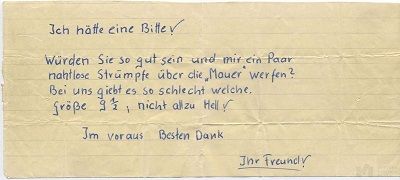 Ich hätte eine Bitte!
Würden Sie so gut sein und mir ein Paar
nahtlose Strümpfe über die „Mauer" werfen?
Bei uns giebt es so schlecht welche.
Größe 9 ½, nicht allzu Hell!
Im voraus Besten Dank
Ihr Freund!